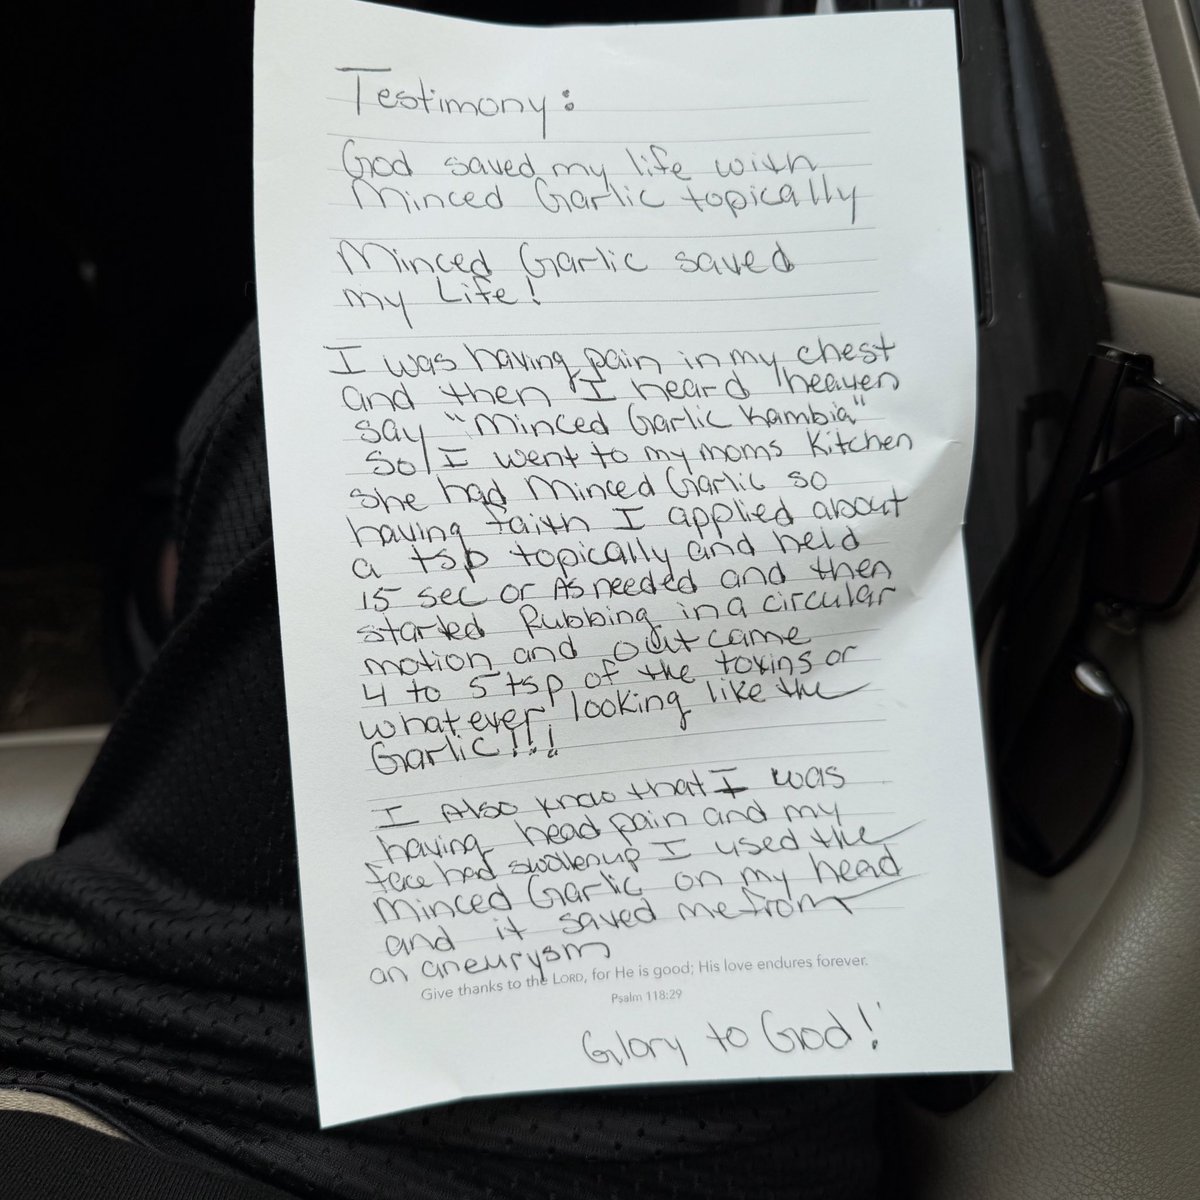 Testimony:
God saved my life with
Minced Garlic topically
Minced Garlic saved
my Life!
I was having pain in my chest
and then I heard heaven
say "Minced Garlic Kambia"
So I went to my moms Kitchen
she had Minced Garlic so
having faith I applied about
a tsp topically and held
15 sec or As needed and then
started Rubbing in a circular
motion and out came
4 to 5 tsp of the toxins or
whatever looking like the
Garlic!!!
I Also know that I was
having head pain and my
face had swollen up I used the
Minced Garlic on my head
and it saved me from
an aneurysm
Give thanks to the LORD, for He is good; His love endures forever.
Psalm 118:29
Glory to God!